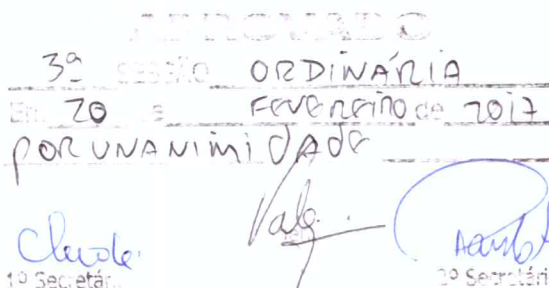 APROVADO
3ª SESSÃO ORDINÁRIA
Em 20 de FEVEREIRO de 2017
POR UNANIMIDADE
1º Secretár
2º Secretári